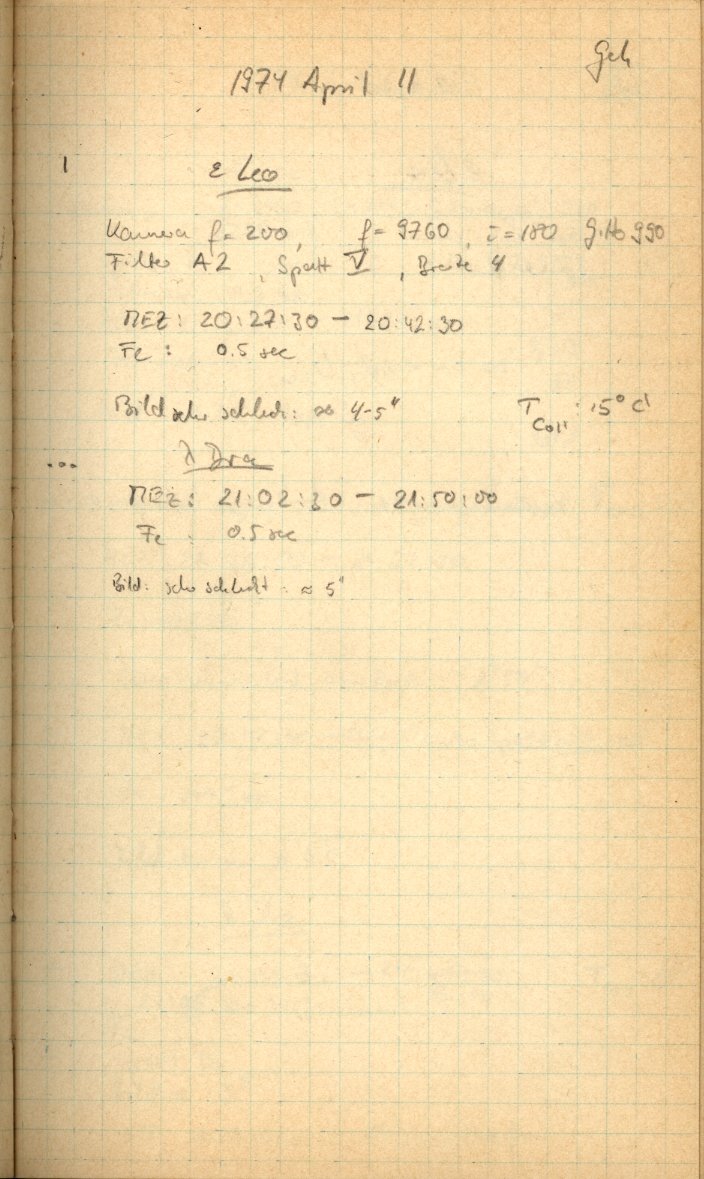 Geh
1974 April 11
1 ε Leo
Kamera f = 200, f = 9760, i = 180
Filter A2, Spalt V, Breite 4
MEZ: 20:27:30 — 20:42:30
Fe: 0.5 sec
Bild sehr schlecht: ≈ 4-5"
T Coll: 15° C
... λ Dra
MEZ: 21:02:30 — 21:50:00
Fe: 0.5 sec
Bild: sehr schlecht: ≈ 5"